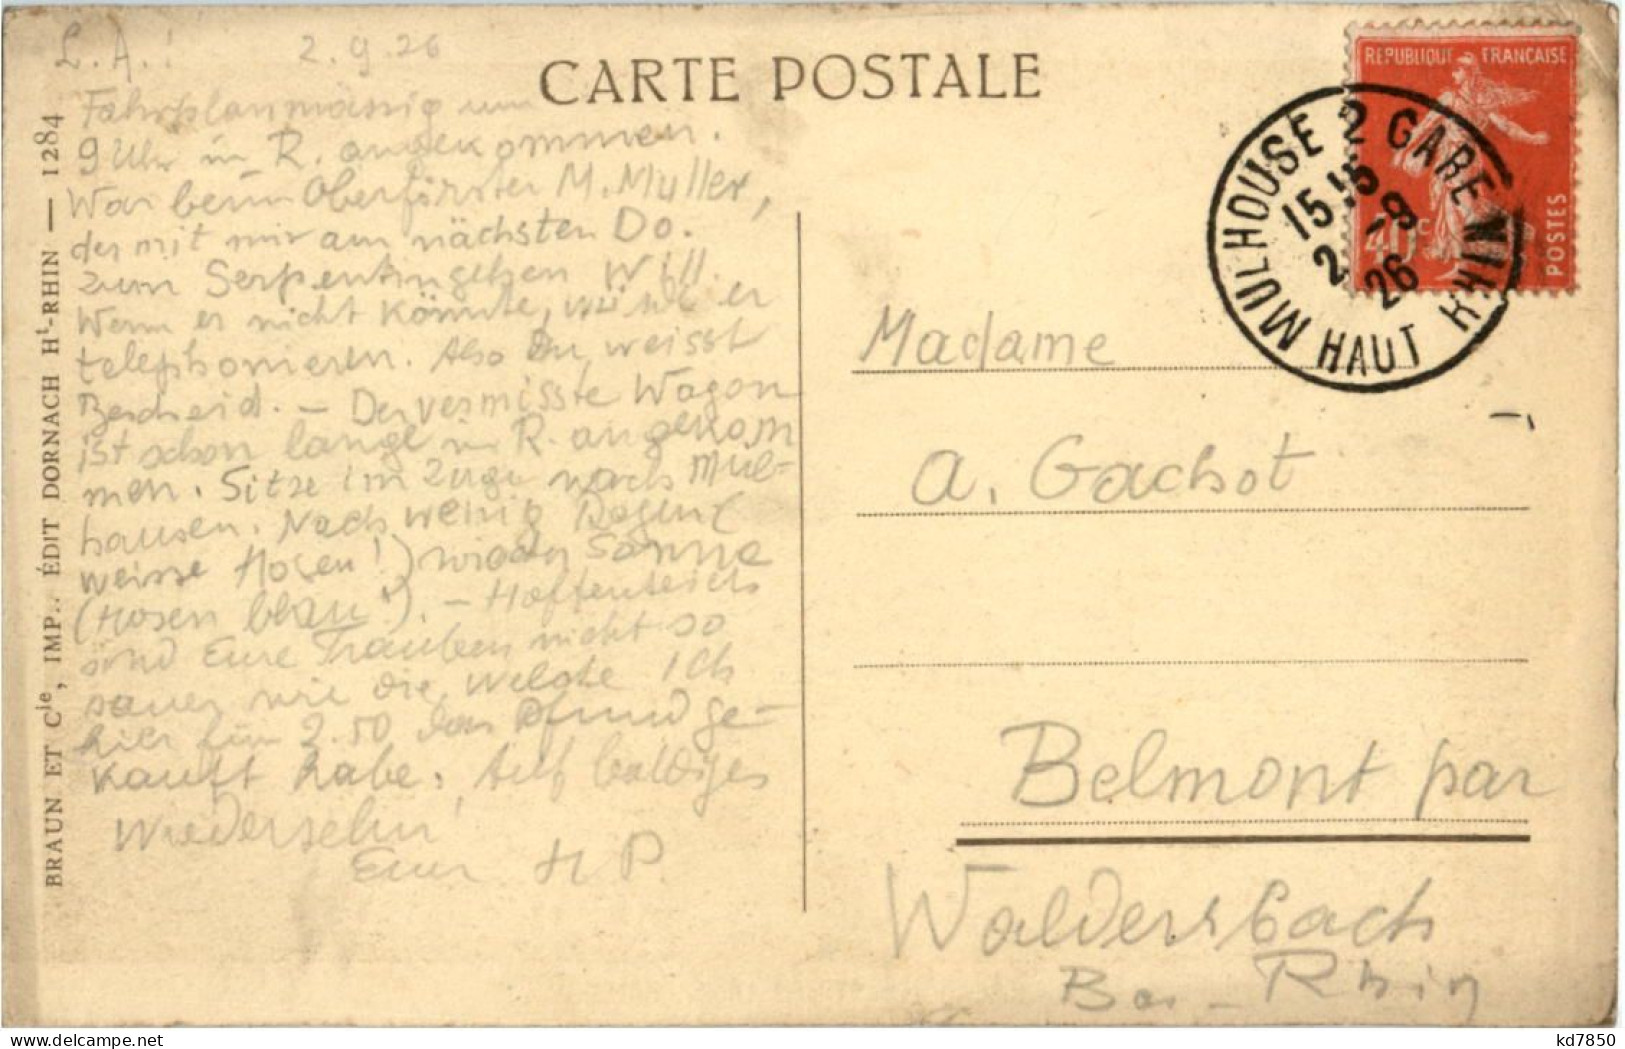 CARTE POSTALE
L. A.! 2.9.26
Fahrplanmässig um
9 Uhr in R. angekommen.
War beim Oberförster M. Muller,
der mit mir am nächsten Do.
zum Serpentingehen will.
Wenn er nicht könnte, würde er
telephonieren. Also Du weisst
Bescheid. – Der vermisste Wagon
ist schon lange in R. angekom
men. Sitze im Zuge nach Mül-
hausen. Nach wenig Regen (
weisse Hosen!) wieder Sonne
(Hosen blau!). – Hoffentlich
sind Eure Trauben nicht so
sauer wie die, welche ich
hier für 2.50 das Pfund ge-
kauft habe. Auf baldiges
Wiedersehn!
Euer H P.
BRAUN ET Cie, IMP., ÉDIT DORNACH Ht-RHIN — 1284
REPUBLIQUE FRANÇAISE
40c
POSTES
MULHOUSE 2 GARE
HAUT RHIN
15
2 -9
26
Madame
A. Gachot
Belmont par
Waldersbach
Bas-Rhin
delcampe.net
kd7850